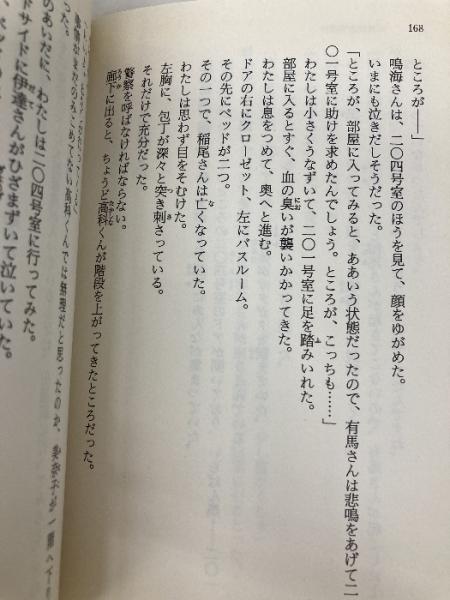 168
ところが――」
鳴海さんは、二〇四号室のほうを見て、顔をゆがめた。
いまにも泣きだしそうだった。
「ところが、部屋に入ってみると、ああいう状態だったので、有馬さんは悲鳴をあげて二
〇一号室に助けを求めたんでしょう。ところが、こっちも……」
わたしは小さくうなずいて、二〇一号室に足を踏みいれた。
部屋に入るとすぐ、血の臭いが襲いかかってきた。
わたしは息をつめて、奥へと進む。
ドアの右にクローゼット、左にバスルーム。
その先にベッドが二つ。
その一つで、稲尾さんは亡くなっていた。
わたしは思わず目をそむけた。
左胸に、包丁が深々と突き刺さっている。
それだけで充分だった。
警察を呼ばなければならない。
廊下に出ると、ちょうど高科くんが階段を上がってきたところだった。
高科くんでは無理だと思ったのか、
った。
のあいだに、わたしは二〇四号室に行ってみた。
ドサイドに伊達さんがひざまずいて泣いていた。